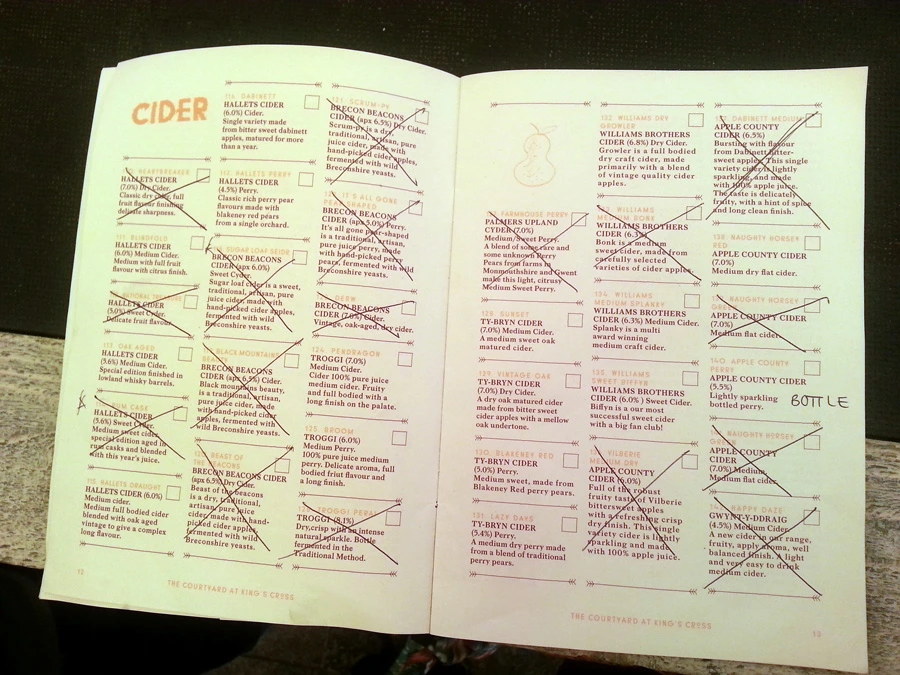 CIDER
110. HEARTBREAKER
HALLETS CIDER
(7.0%) Dry Cider.
Classic dry cider, full
fruit flavour finishing
delicate sharpness.
111. BLINDFOLD
HALLETS CIDER
(6.0%) Medium Cider.
Medium with full fruit
flavour with citrus finish.
HALLETS CIDER
(5.0%) Sweet Cyder.
Delicate fruit flavour.
113. OAK AGED
HALLETS CIDER
(5.6%) Medium Cider.
Special edition finished in
lowland whisky barrels.
RUM CASK
HALLETS CIDER
(5.6%) Sweet Cyder.
Medium sweet cider,
special edition aged in
rum casks and blended
with this year's juice.
115. HALLETS DRAUGHT
HALLETS CIDER (6.0%)
Medium cider.
Medium full bodied cider
blended with oak aged
vintage to give a complex
long flavour.
116. DABINETT
HALLETS CIDER
(6.0%) Cider.
Single variety made
from bitter sweet dabinett
apples, matured for more
than a year.
117. HALLETS PERRY
HALLETS CIDER
(4.5%) Perry.
Classic rich perry pear
flavours made with
blakeney red pears
from a single orchard.
118. SUGAR LOAF
BRECON BEACONS
CIDER (apx 6.0%)
Sweet Cyder.
Sugar loaf cider is a sweet,
traditional, artisan, pure
juice cider, made with
hand-picked cider apples,
fermented with wild
Breconshire yeasts.
BLACK MOUNTAIN
BEAUTY
BRECON BEACONS
CIDER (apx 6.5%) Cider.
Black mountains beauty,
is a traditional, artisan,
pure juice cider, made
with hand-picked cider
apples, fermented with
wild Breconshire yeasts.
120. BEAST OF
THE BEACONS
BRECON BEACONS CIDER
(apx 6.5%) Dry Cider.
Beast of the beacons
is a dry, traditional,
artisan, pure juice
cider, made with hand-
picked cider apples,
fermented with wild
Breconshire yeasts.
121. SCRUM-PY
BRECON BEACONS
CIDER (apx 6.5%) Dry Cider.
Scrum-py is a dry,
traditional, artisan, pure
juice cider, made with
hand-picked cider apples,
fermented with wild
Breconshire yeasts.
IT'S ALL GONE
PEAR SHAPED
BRECON BEACONS
CIDER (apx 5.0%) Perry.
It's all gone pear-shaped
is a traditional, artisan,
pure juice perry, made
with hand-picked perry
pears, fermented with wild
Breconshire yeasts.
DERW
BRECON BEACONS
CIDER (7.0%) Cider.
Vintage, oak-aged, dry cider.
124. PENDRAGON
TROGGI (7.0%)
Medium Cider.
Cider 100% pure juice
medium cider. Fruity
and full bodied with a
long finish on the palate.
125. BROOM
TROGGI (6.0%)
Medium Perry.
100% pure juice medium
perry. Delicate aroma, full
bodied friut flavour and
a long finish.
126. TROGGI PERRY
TROGGI (8.1%)
Dry, crisp with an intense
natural sparkle. Bottle
fermented in the
Traditional Method.
12
THE COURTYARD AT KING'S CROSS
127. FARMHOUSE PERRY
PALMERS UPLAND
CYDER (7.0%)
Medium/Sweet Perry.
A blend of some rare and
some unknown Perry
Pears from farms in
Monmouthshire and Gwent
make this light, citrusy
Medium Sweet Perry.
128. SUNSET
TY-BRYN CIDER
(7.0%) Medium Cider.
A medium sweet oak
matured cider.
129. VINTAGE OAK
TY-BRYN CIDER
(7.0%) Dry Cider.
A dry oak matured cider
made from bitter sweet
cider apples with a mellow
oak undertone.
130. BLAKENEY RED
TY-BRYN CIDER
(5.0%) Perry.
Medium sweet, made from
Blakeney Red perry pears.
131. LAZY DAYS
TY-BRYN CIDER
(5.4%) Perry.
A medium dry perry made
from a blend of traditional
perry pears.
132. WILLIAMS DRY
GROWLER
WILLIAMS BROTHERS
CIDER (6.8%) Dry Cider.
Growler is a full bodied
dry craft cider, made
primarily with a blend
of vintage quality cider
apples.
133. WILLIAMS
MEDIUM BONK
WILLIAMS BROTHERS
CIDER (6.3%)
Bonk is a medium
sweet cider, made from
carefully selected
varieties of cider apples.
134. WILLIAMS
MEDIUM SPLANKY
WILLIAMS BROTHERS
CIDER (6.3%) Medium Cider.
Splanky is a multi
award winning
medium craft cider.
135. WILLIAMS
SWEET BIFFYN
WILLIAMS BROTHERS
CIDER (6.0% ) Sweet Cider.
Biffyn is a our most
successful sweet cider
with a big fan club!
136. VILBERIE
MEDIUM DRY
APPLE COUNTY
CIDER (6.0%)
Full of the robust
fruity taste of Vilberie
bittersweet apples
with a refreshing crisp
dry finish. This single
variety cider is lightly
sparkling and made
with 100% apple juice.
137. DABINETT MEDIUM
APPLE COUNTY
CIDER (6.5%)
Bursting with flavour
from Dabinett bitter-
sweet apples. This single
variety cider is lightly
sparkling, and made
with 100% apple juice.
The taste is delicately
fruity, with a hint of spice
and long clean finish.
138. NAUGHTY HORSEY
RED
APPLE COUNTY CIDER
(7.0%)
Medium dry flat cider.
139. NAUGHTY HORSEY
GREEN
APPLE COUNTY CIDER
(7.0%)
Medium flat cider.
140. APPLE COUNTY
PERRY
APPLE COUNTY CIDER
(5.5%)
Lightly sparkling
bottled perry.
BOTTLE
141. NAUGHTY HORSEY
GREEN
APPLE COUNTY
CIDER
(7.0%) Medium.
Medium flat cider.
HAPPY DAZE
GWYNT-Y-DDRAIG
(4.5%) Medium Cider.
A new cider in our range,
fruity, apply aroma, well
balanced finish. A light
and very easy to drink
medium cider.
THE COURTYARD AT KING'S CROSS
13